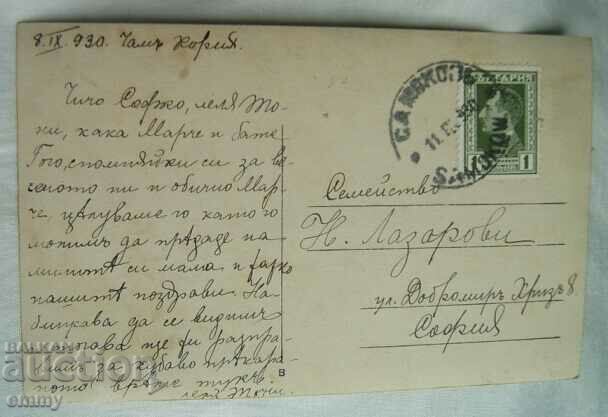 8.IX.930. Чамъ Кория.
Чичо Софжо, леля То-
ни, кака Марче и бате
Гого, спомняйки си за ве-
селото ни и обично Мар-
че, цѣлуваме го като го
молимъ да предаде на
милитѣ си мама и
нашитѣ поздрави. На-
ближава да се видимъ
тогава ще ви разпра-
за хубаво прѣкара-
ното врѣме тукъ.
леля Тони.
САМОКОВ
11.IX.930
SAMOKOW
БЪЛГАРИЯ
1 1
Семейство
Н. Лазарови
ул. Добромиръ Хризъ 8
София
8